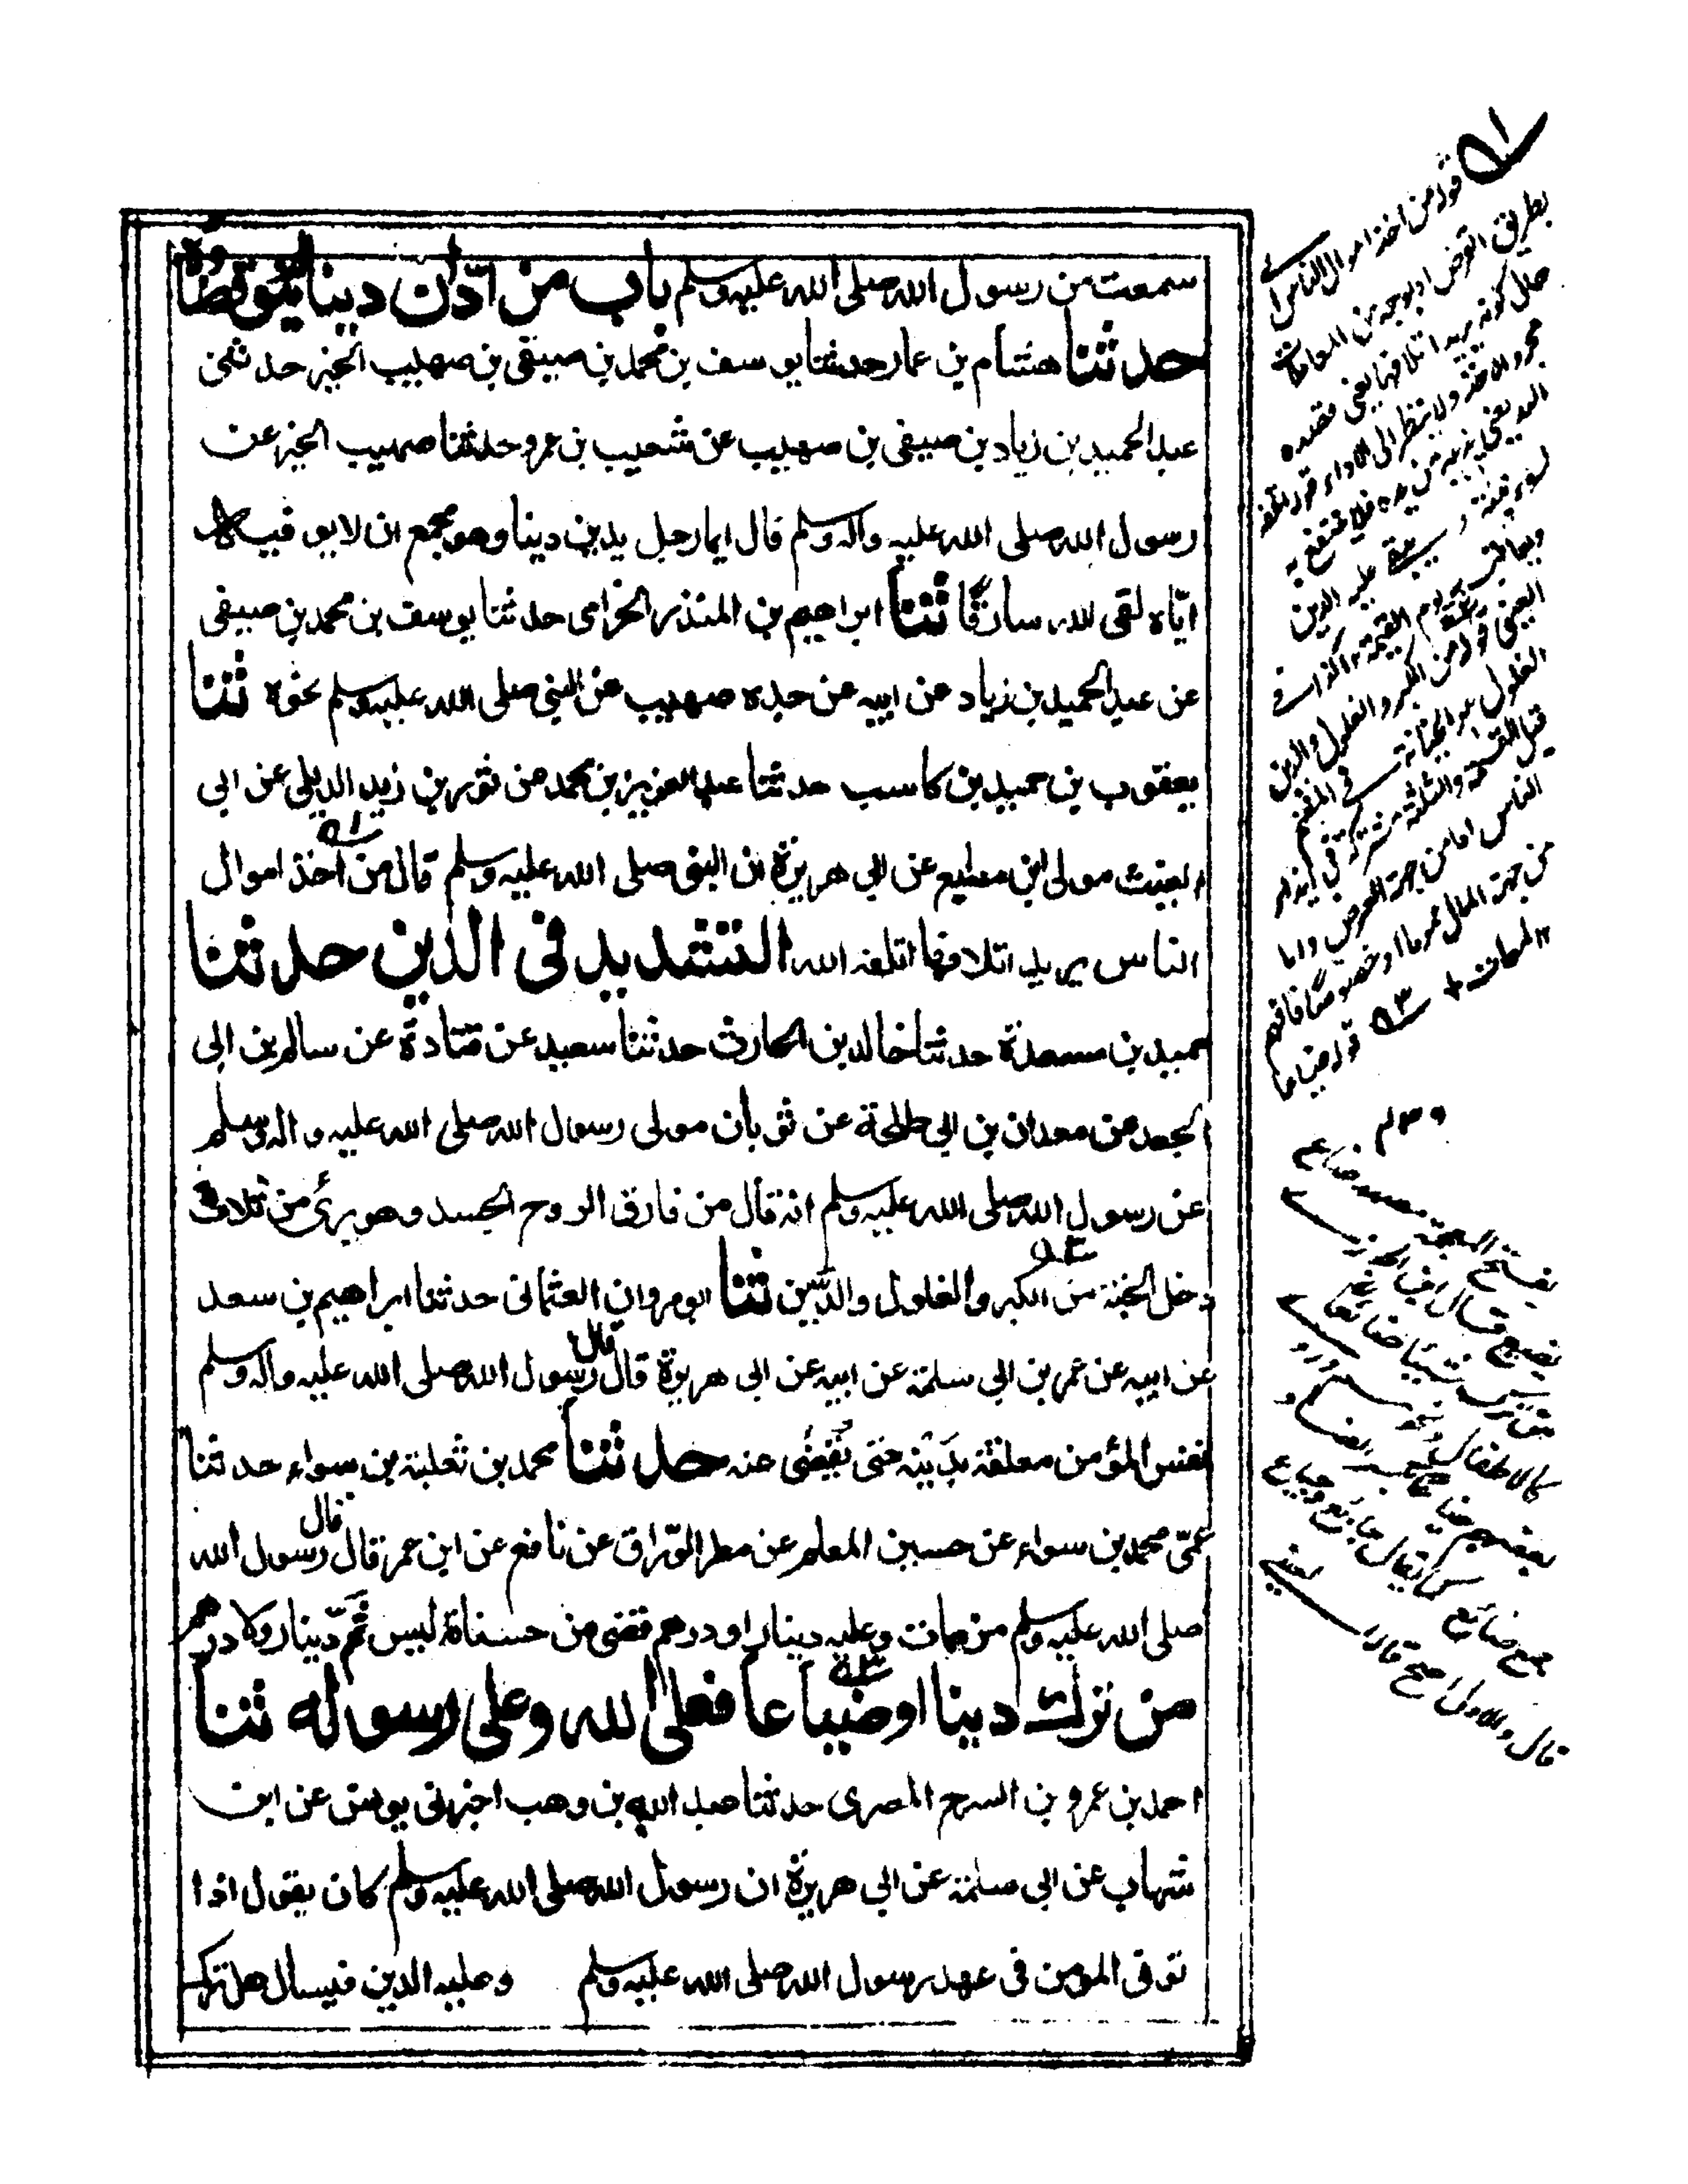 سمعت من رسول الله صلى الله عليه وسلم باب من ادّان دينا لم ينو قضاءه
حدثنا هشام بن عمار حدثنا يوسف بن محمد بن صيفى بن صهيب الخير حدثنى
عبد الحميد بن زياد بن صيفى بن صهيب عن شعيب بن عمرو حدثنا صهيب الخير عن
رسول الله صلى الله عليه وآله وسلم قال ايما رجل يدين دينا وهو مجمع ان لا يوفيه
ايّاه لقى الله سارقًا ثنا ابراهيم بن المنذر الحزامى حدثنا يوسف بن محمد بن صيفى
عن عبد الحميد بن زياد عن ابيه عن جده صهيب عن النبى صلى الله عليه وسلم نحوه ثنا
يعقوب بن حميد بن كاسب حدثنا عبد العزيز بن محمد عن ثور بن زيد الديلى عن ابى
الغيث مولى ابن مطيع عن ابى هريرة ان النبى صلى الله عليه وسلم قال من اخذ اموال
الناس يريد اتلافها اتلفه الله التشديد فى الدين حدثنا
حميد بن مسعدة حدثنا خالد بن الحارث حدثنا سعيد عن قتادة عن سالم بن ابى
الجعد عن معدان بن ابى طلحة عن ثوبان مولى رسول الله صلى الله عليه واله وسلم
عن رسول الله صلى الله عليه وسلم انه قال من فارق الروح الجسد وهو برئ من ثلاث
دخل الجنة من الكبر والغلول والدّين ثنا ابو مروان العثمانى حدثنا ابراهيم بن سعد
عن ابيه عن عمر بن ابى سلمة عن ابيه عن ابى هريرة قال قال رسول الله صلى الله عليه وآله وسلم
نفس المؤمن معلقة بدَيْنه حتى يُقضٰى عنه حدثنا محمد بن ثعلبة بن سواء حدثنا
عمّى محمد بن سواء عن حسين المعلم عن مطر الورّاق عن نافع عن ابن عمر قال قال رسول الله
صلى الله عليه وسلم من مات وعليه دينار او درهم قضى من حسناته ليس ثمّ دينار ولا درهم
من ترك دينا او ضياعا فعلى الله وعلى رسوله ثنا
احمد بن عمرو بن السرح المصرى حدثنا عبد الله بن وهب اخبرنى يونس عن ابن
شهاب عن ابى سلمة عن ابى هريرة ان رسول الله صلى الله عليه وسلم كان يقول اذا
توفى المومن فى عهد رسول الله صلى الله عليه وسلم وعليه الدين فيسال هل ترك
قوله من اخذ اموال الناس
بطريق القرض او بوجه من المعاملات
حال كونه يريد اتلافها يعنى قصده
مجرد الاخذ ولا ينظر الى الاداء
فلا ينتفع به
لسوء نيته ويبقى عليه الدين
يوم القيمة
العينى قوله من الكبر والغلول والدين
الغلول الخيانة فى المغنم
قبل القسمة والثلثة مشتركة فى ايذاء
الناس اما من جهة العرض واما
من جهة المال عموما او خصوصا فافهم
١٢ لمعات قوله ضياعا